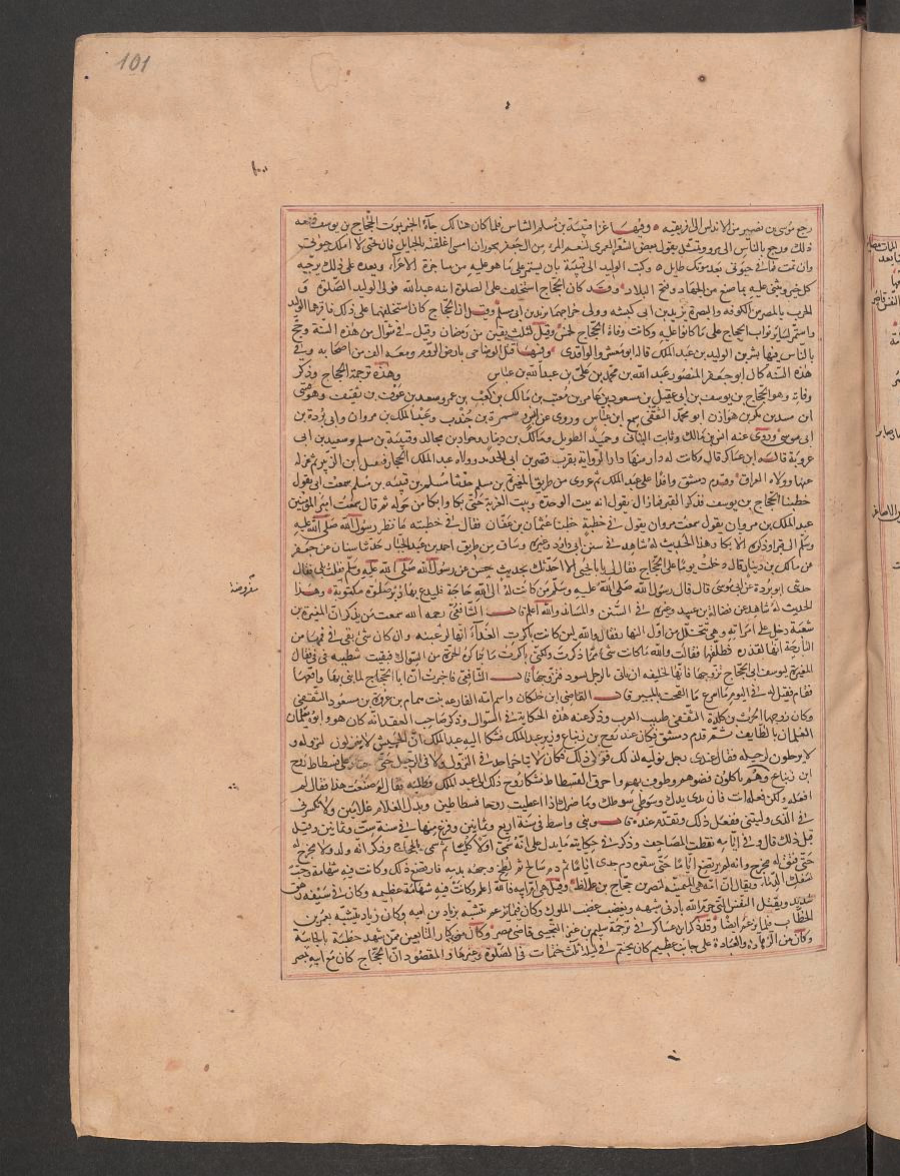 101
رجع موسى بن نصير من الاندلس الى افريقيه وفيها غزا قتيبة بن مسلم الشاس فلما كان هنالك جاءه الخبر بموت الحجاج بن يوسف فقمعه
ذلك ورجع بالناس الى مرو وتمثل بقول بعض الشعرا لعمرى لنعم المرء من آل جعفر بحوران امسى اعلقته الحبايل فان تحى لا املك حيوتى
وان تمت فما فى حيوتى بعد موتك طايل وكتب الوليد الى قتيبة بان يستمر على ما هو عليه من مناجزة الاعداء ويعده على ذلك ويجزيه
كل خير ويثنى عليه بما صنع من الجهاد وفتح البلاد وقد كان الحجاج استخلف على الصلوة ابنه عبد الله فولى الوليد الصلوة و
الحرب بالمصرين الكوفه والبصرة يزيد بن ابى كبشه وولى خراجهما يزيد بن ابى مسلم وقيل ان الحجاج كان استخلفهما على ذلك فاقرهما الوليد
واستمر لساير نواب الحجاج على ما كانوا عليه وكانت وفاة الحجاج لخمس وقيل لثلث بقين من رمضان وقيل فى شوال من هذه السنة وحج
بالناس فيها بشر بن الوليد بن عبد الملك قاله ابو معشر والواقدى وفيها قتل الوضاحى بارض الروم ومعه الف من اصحابه وفى
هذه السنة كان ابو جعفر المنصور عبد الله بن محمد بن على بن عبد الله بن عباس وهذه ترجمة الحجاج وذكر
وفاته هو الحجاج بن يوسف بن ابى عقيل بن مسعود بن عامر بن معتب بن مالك بن كعب بن عمرو بن سعد بن عوف بن ثقيف وهو قسى
ابن منبه بن بكر بن هوازن ابو محمد الثقفى سمع ابن عباس وروى عن انس وسمرة بن جندب وعبد الملك بن مروان وابى بردة بن
ابى موسى وروى عنه انس بن مالك وثابت البنانى وحميد الطويل ومالك بن دينار وجواد بن مجالد وقتيبة بن مسلم وسعيد بن ابى
عروبة قاله ابن عساكر قال وكانت له دار منها دار الراوية بقرب قصر بن ابى الحديد وولاه عبد الملك الحجاز فقتل ابن الزبير ثم عزله
عنها وولاه العراق وقدم دمشق وافدا على عبد الملك ثم روى من طريق المغيرة بن مسلم حدثنا مسلم بن قتيبة بن مسلم سمعت ابى يقول
خطبنا الحجاج بن يوسف فذكر القبر فما زال يقول انه بيت الوحدة وبيت الغربة حتى بكا وابكا من حوله ثم قال سمعت امير المؤمنين
عبد الملك بن مروان يقول سمعت مروان يقول فى خطبة خطبنا عثمان بن عفان فقال فى خطبته ما نظر رسول الله صلى الله عليه
وسلم الى قبر او ذكره الا بكا وهذا الحديث له شاهد فى سنن ابى داود وغيره وساق من طريق احمد بن عبد الجبار حدثنا سنان عن جعفر
عن مالك بن دينار قال دخلت يوما على الحجاج فقال لى يا ابا يحيى الا احدثك بحديث حسن عن رسول الله صلى الله عليه وسلم فقلت بلى فقال
حدثنى ابو بردة عن ابى موسى قال قال رسول الله صلى الله عليه وسلم من كانت له الى الله حاجة فليدع بها دبر صلوة مكتوبة وهذا
مفروضة
الحديث له شاهد عن فضالة بن عبيد وغيره فى السنن والمسانيد والله اعلم قال الشافعى رحمه الله سمعت من يذكر ان المغيرة بن
شعبة دخل على امراته وهى تتخلل من اول النهار فقال والله لئن كانت باكرت الغداء انها لرغيبة وان كان شئ بقى فى فيها من
البارحة انها لقذره فطلقها فقالت والله ما كان شئ مما ذكرت ولكنى باكرت ما تباكره الحرة من السواك فبقيت شظية فى فى فقال
المغيرة ليوسف ابى الحجاج تزوجها فانها لخليقه ان تاتى برجل يسود فتزوجها قال الشافعى فاخبرت ان ابا الحجاج لما بنى بها واقعها
فنام فقيل له فى اليوم ما اسرع ما القحت بالمبير قال القاضى ابن خلكان واسم امه الفارعه بنت همام بن عروة بن مسعود الثقفى
وكان زوجها الحرث بن كلدة الثقفى طبيب العرب وذكر عنه هذه الحكاية فى السواك وذكر صاحب العقد انه كان هو وابوه يعلمان
الغلمان بالطايف ثم قدم دمشق فكان عند روح بن زنباع وزير عبد الملك فشكا اليه عبد الملك ان الجيش لا ينزلون لنزوله و
لا يرحلون لرحيله فقال عندى رجل توليه لذلك فولاه ذلك فكان لا يتاخر احد فى النزول ولا فى الرحيل حتى اجتاز على فسطاط روح
ابن زنباع وهم ياكلون فضربهم وطوف بهم واحرق الفسطاط فشكا روح ذلك الى عبد الملك فطلبه فقال لم صنعت هذا فقال لم
افعله ولكن فعله انت فان يدى يدك وسوطى سوطك وما ضرك اذا اعطيت روحا فسطاطين وبدل الغلام غلامين ولا تكسرنى
فى الذى وليتنى ففعل ذلك وتقدم عنده قال وبنى واسط فى سنة اربع وثمانين وفرغ منها فى سنة ست وثمانين وقيل
قبل ذلك قال وفى ايامه نقطت المصاحف وذكر فى حكايته ما يدل على انه سمى اولا كليبا ثم سمى الحجاج وذكر انه ولد ولا مخرج له
حتى فتق له مخرج وانه لم يرتضع اياما حتى سقوه دم جدى اياما ثم دم سالخ ثم لطخ بدمه وجهه فارتضع ذلك وكانت فيه شهامة وحب
لسفك الدماء ويقال ان امه هى المتمنية لنصر بن حجاج بن علاط وقيل هى ام ابيه فالله اعلم وكانت فيه شهامة عظيمة وكان فى سيفه رهق
شديد ويقتل النفس التى حرم الله بادنى شبهة ويغضب غضب الملوك وكان فيما يزعم يتشبه بزياد بن ابيه وكان زياد يتشبه بعمر بن
الخطاب فيما يزعم ايضا وقد ذكر ابن عساكر فى ترجمة سليم بن عنز التجيبى قاضى مصر وكان من كبار التابعين ممن شهد خطبة بالجابية
وكان من الزهاد والعبادة على جانب عظيم كان يختم فى ليلة ثلث ختمات فى الصلوة وغيرها والمقصود ان الحجاج كان مع ابيه بمصر